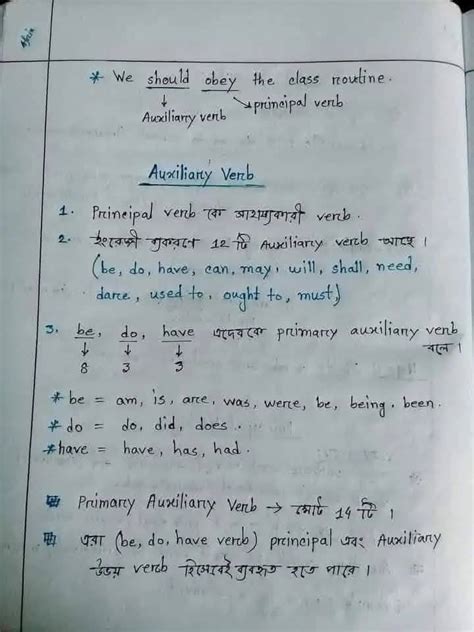 * We should obey the class routine.
Auxiliary verb principal verb
Auxiliary Verb
1. Principal verb কে সাহায্যকারী verb.
2. ইংরেজী ব্যকরণে 12 টি Auxiliary verb আছে।
(be, do, have, can, may, will, shall, need,
dare, used to, ought to, must)
3. be, do, have এদেরকে primary auxiliary verb
বলে।
8 3 3
* be = am, is, are, was, were, be, being, been.
* do = do, did, does.
* have = have, has, had.
Primary Auxiliary Verb → মোট 14 টি।
এরা (be, do, have verb) principal এবং Auxiliary
উভয় verb হিসেবেই ব্যবহৃত হতে পারে।